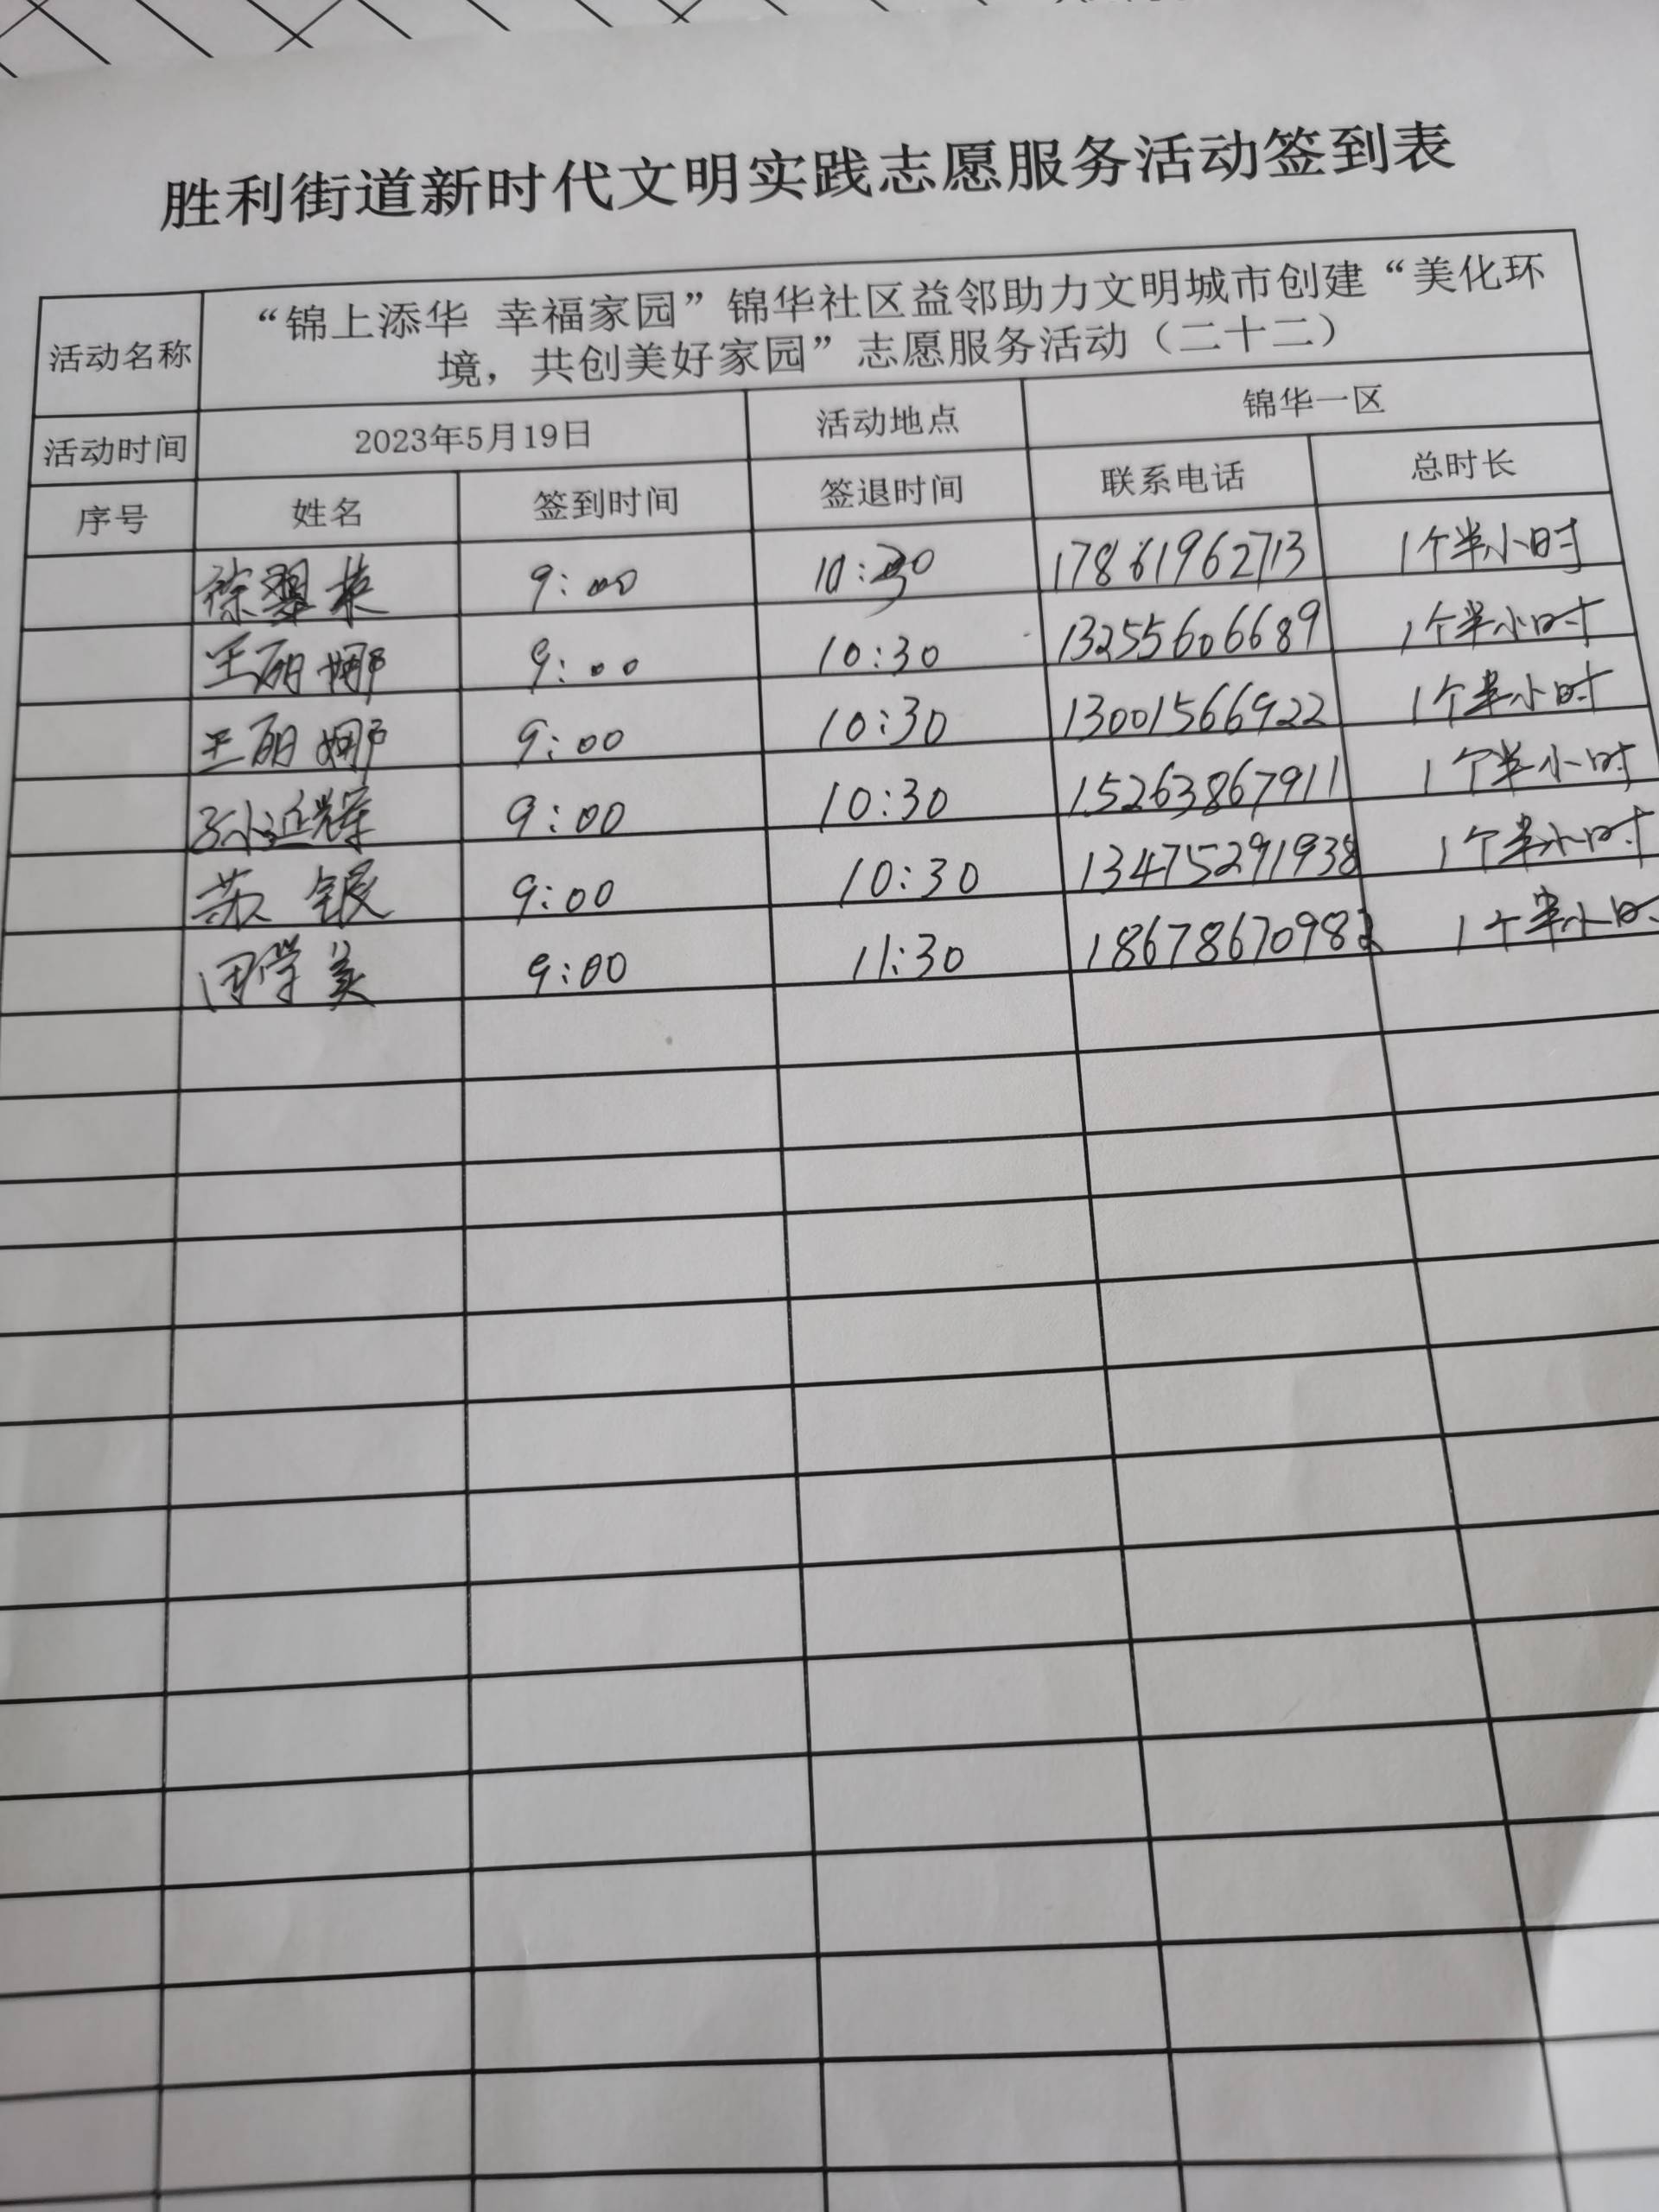 胜利街道新时代文明实践志愿服务活动签到表
活动名称 “锦上添华 幸福家园”锦华社区益邻助力文明城市创建“美化环
境，共创美好家园”志愿服务活动（二十二）
活动时间 2023年5月19日 活动地点 锦华一区
序号 姓名 签到时间 签退时间 联系电话 总时长
徐翠英 9:00 10:30 17861962713 1个半小时
王丽娜 9:00 10:30 13255606689 1个半小时
王丽娜 9:00 10:30 13001566922 1个半小时
孙延辉 9:00 10:30 15263867911 1个半小时
苏银 9:00 10:30 13475291938 1个半小时
田学美 9:00 11:30 1867867098 1个半小时